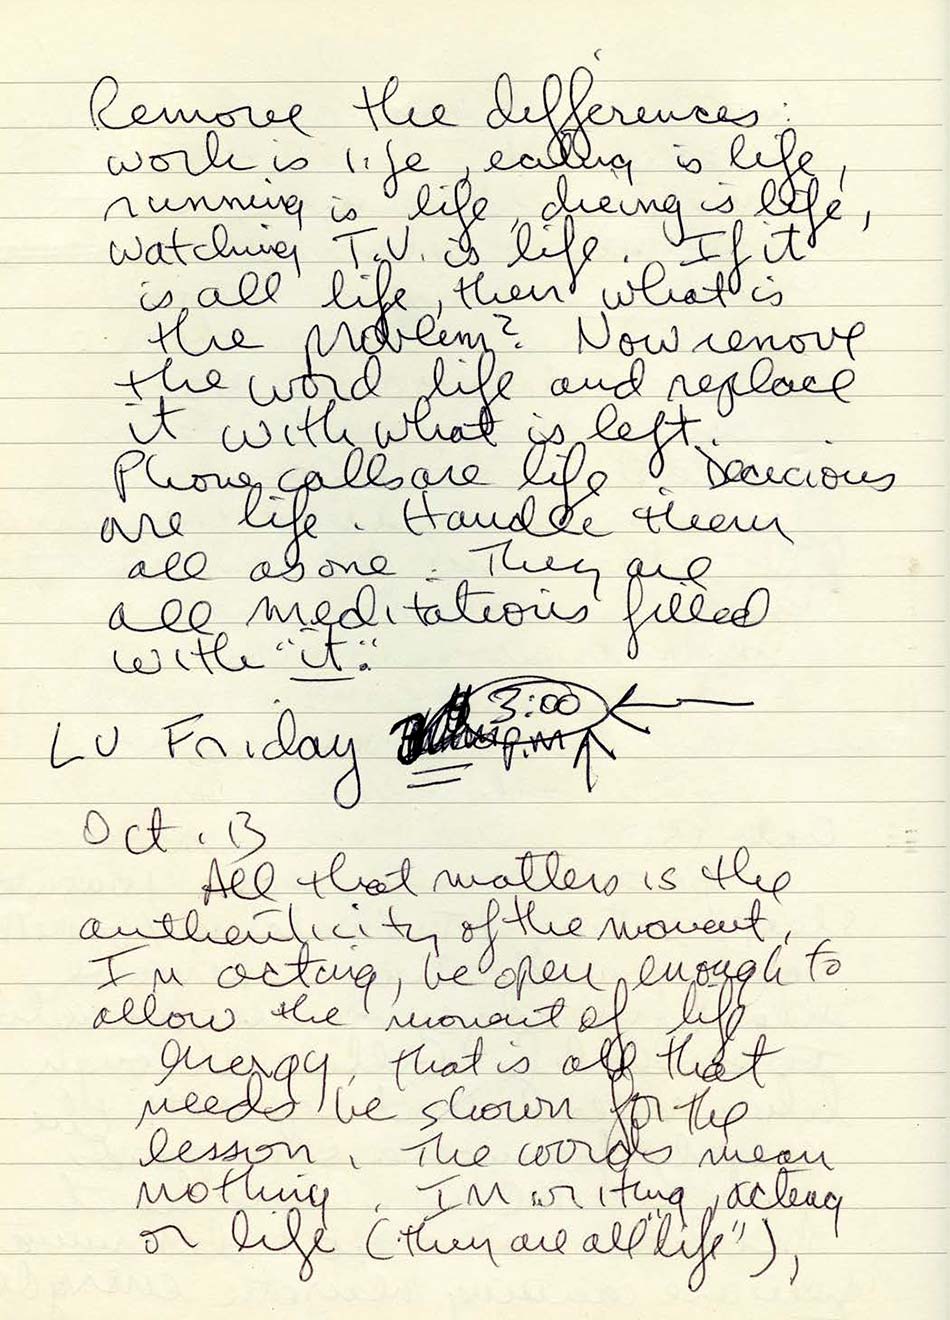 Remove the differences:
work is life, eating is life,
running is life, dieing is life,
watching T.V. is life. If it
is all life, then what is
the problem? Now remove
the word life and replace
it with what is left.
Phone calls are life. Decicions
are life. Handle them
all as one. They are
all meditations filled
with "it".
LV Friday 3:00
p.m
Oct. 13
All that matters is the
authenticity of the moment.
In acting, be open enough to
allow the moment of life
energy, that is all that
needs be shown for the
lesson. The words mean
nothing. In writing, acting
or life (they are all "life"),